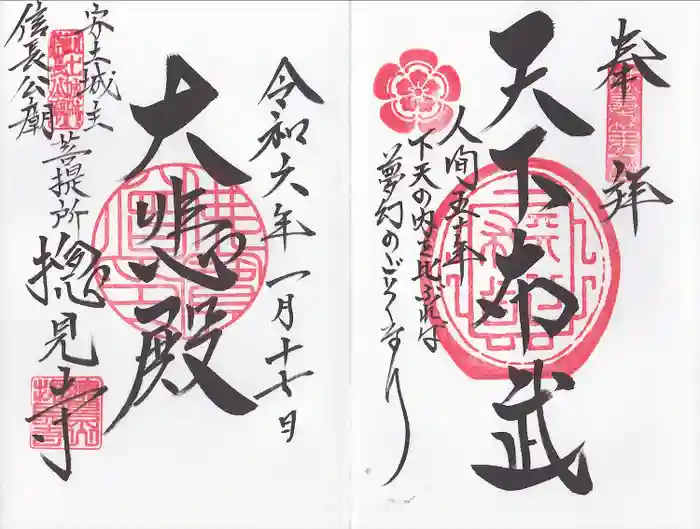 奉拝
天下布武
人間五十年
下天の内を比ぶれば
夢幻のごとくなり
令和六年一月十七日
大悲殿
安土城主
信長公廟
菩提所
摠見寺